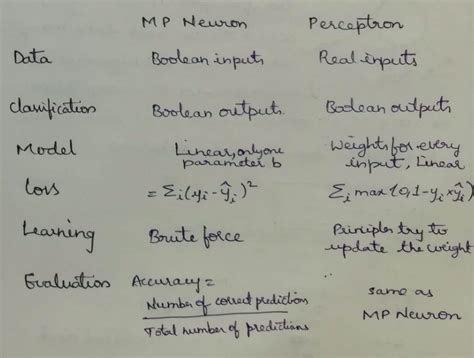 MP Neuron Perceptron
Data Boolean inputs Real inputs
Classification Boolean outputs. Boolean outputs
Model Linear, only one parameter b Weights for every input, Linear
Loss = Σi(yi - ŷi)² Σi max(0,1-yi*ŷi)
Learning Brute force Principles try to update the weight
Evaluation Accuracy = Number of correct predictions / Total number of predictions same as MP Neuron